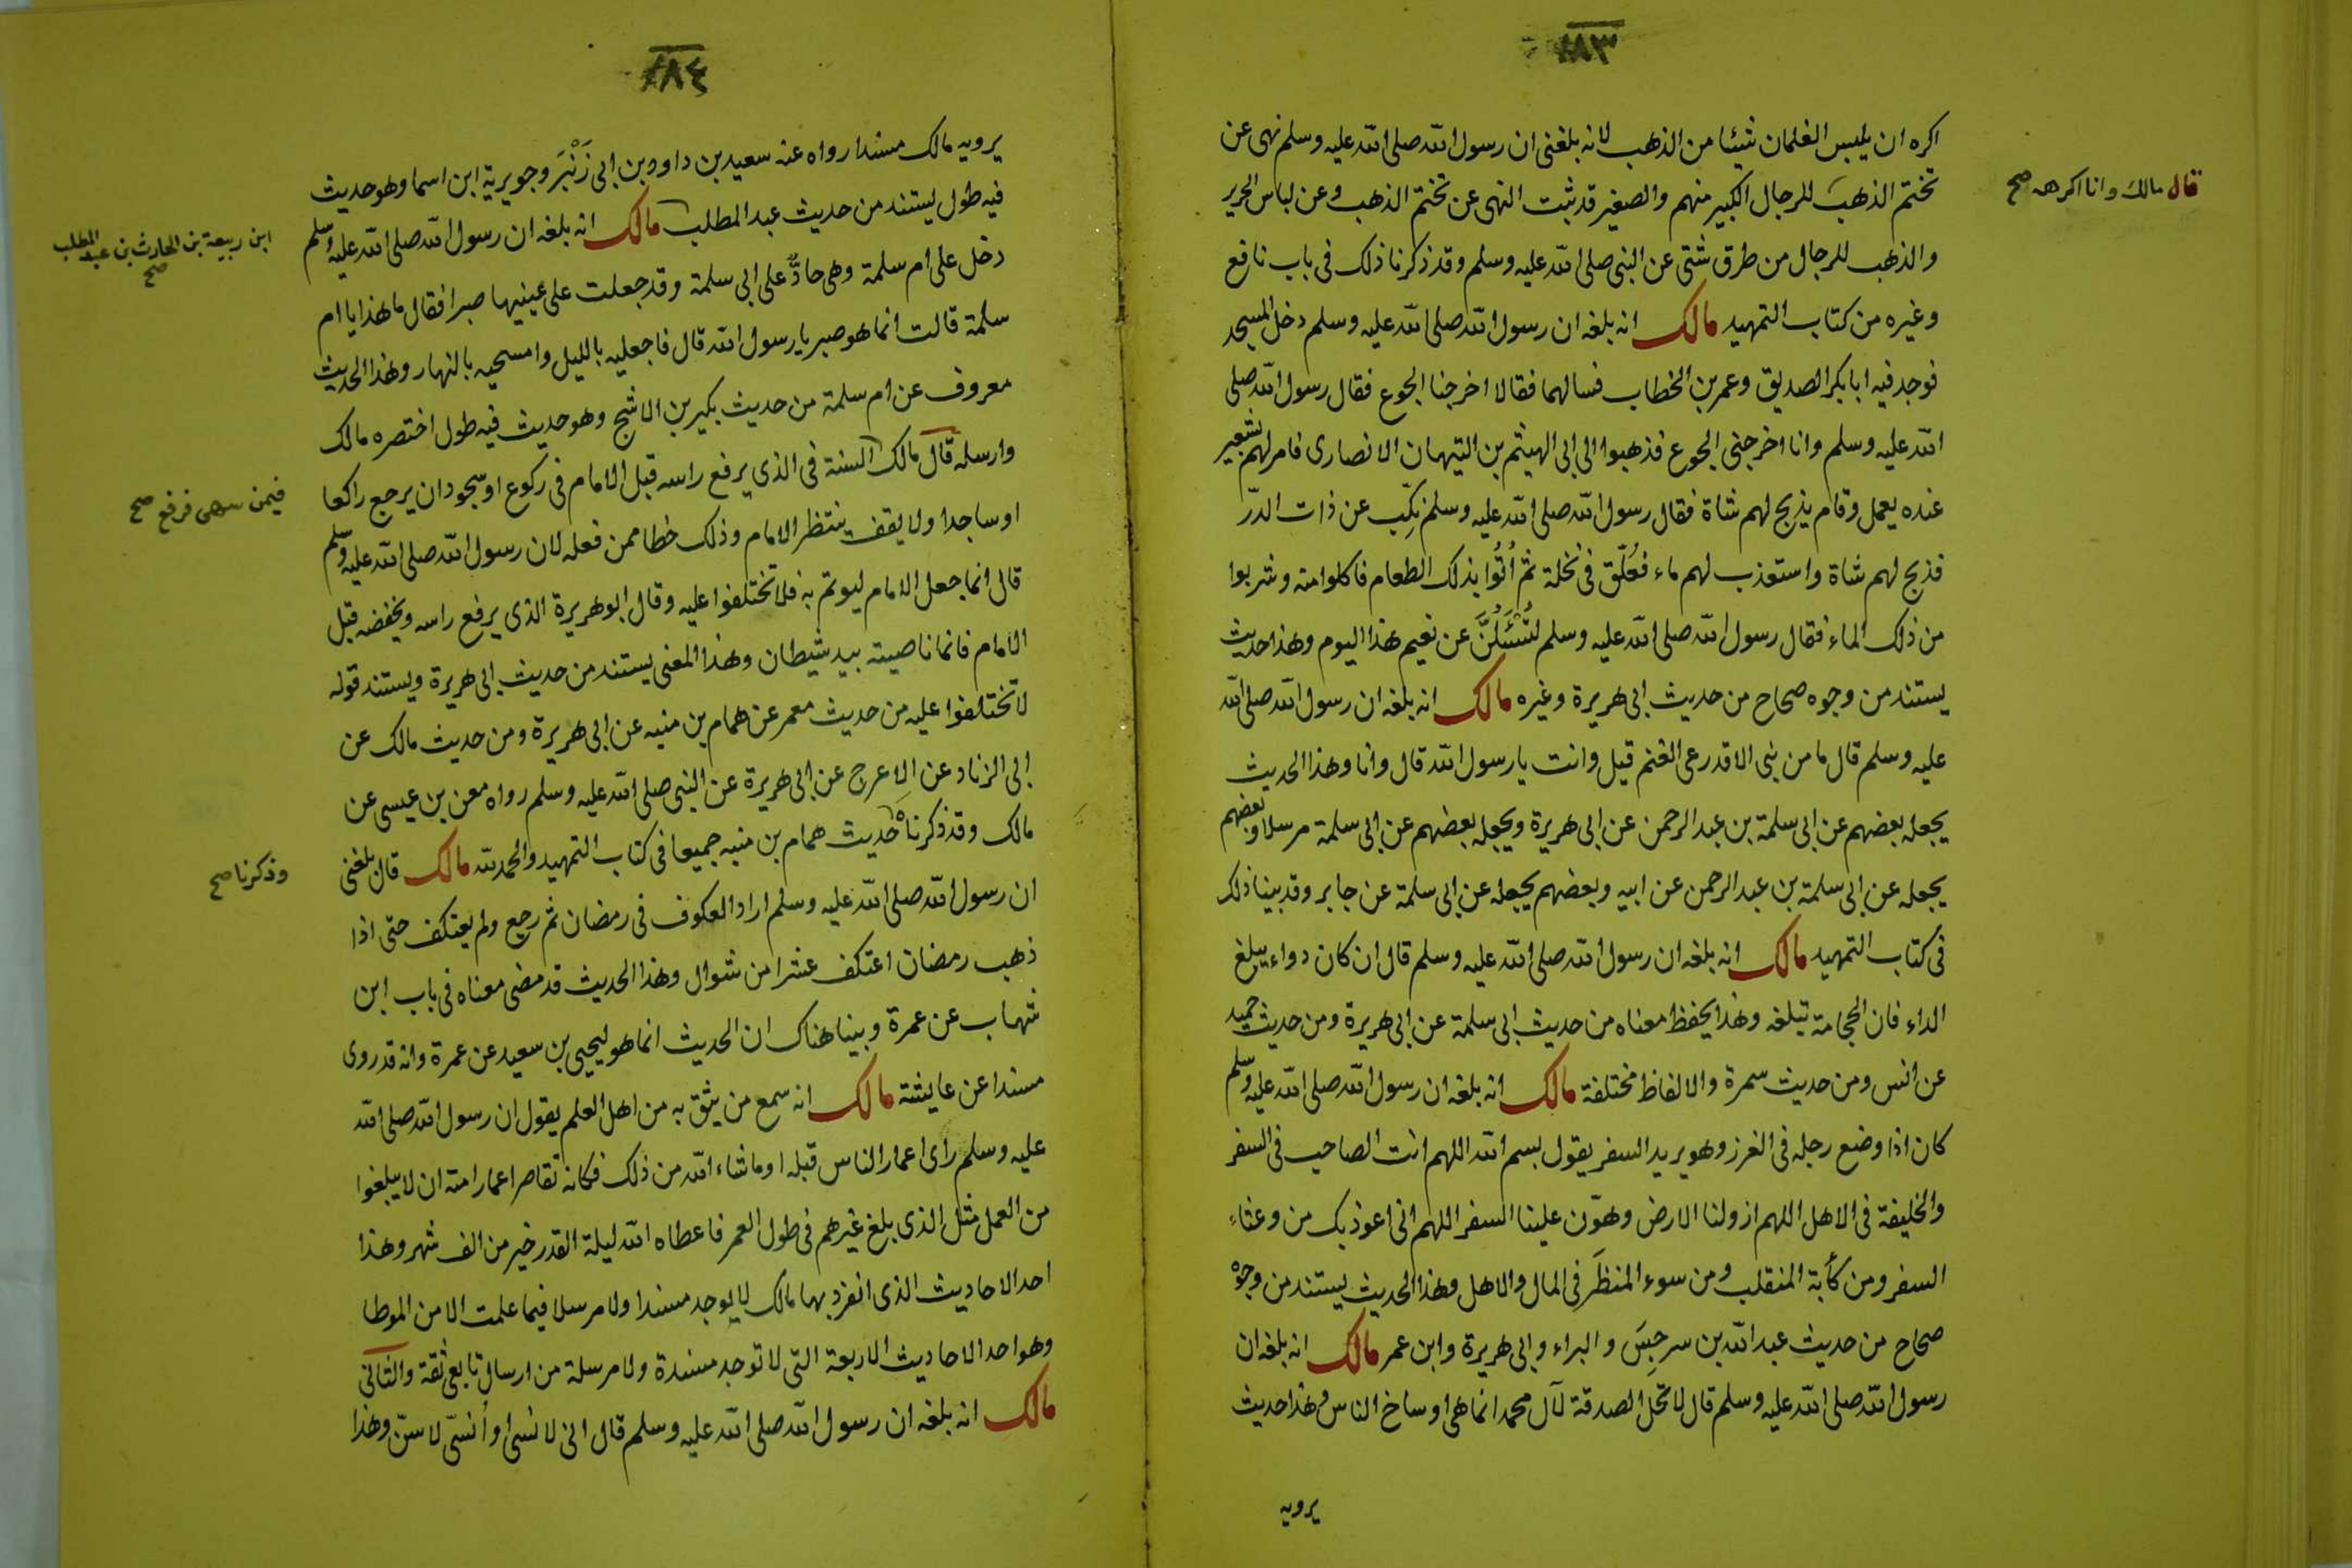 ١٨٣
اكره ان يلبس الغلمان شيئا من الذهب لانه بلغنى ان رسول الله صلى الله عليه وسلم نهى عن
قال مالك وانا اكرهه صح
تختم الذهب للرجال الكبير منهم والصغير قد ثبت النهى عن تختم الذهب وعن لباس الحرير
والذهب للرجال من طرق شتى عن النبى صلى الله عليه وسلم وقد ذكرنا ذلك فى باب نافع
وغيره من كتاب التمهيد مالك انه بلغه ان رسول الله صلى الله عليه وسلم دخل المسجد
فوجد فيه ابا بكر الصديق وعمر بن الخطاب فسالهما فقالا اخرجنا الجوع فقال رسول الله صلى
الله عليه وسلم وانا اخرجنى الجوع فذهبوا الى ابى الهيثم بن التيهان الانصارى فامر لهم بشعير
عنده يعمل وقام يذبح لهم شاة فقال رسول الله صلى الله عليه وسلم نكّب عن ذات الدرّ
فذبح لهم شاة واستعذب لهم ماء فعُلّق فى نخلة ثم اُتُوا بذلك الطعام فاكلوا منه وشربوا
من ذلك الماء فقال رسول الله صلى الله عليه وسلم لتُسْئَلُنَّ عن نعيم هذا اليوم وهذا حديث
يستند من وجوه صحاح من حديث ابى هريرة وغيره مالك انه بلغه ان رسول الله صلى الله
عليه وسلم قال ما من نبى الا قد رعى الغنم قيل وانت يا رسول الله قال وانا وهذا الحديث
يجعله بعضهم عن ابى سلمة بن عبد الرحمن عن ابى هريرة ويجعله بعضهم عن ابى سلمة مرسلا وبعضهم
يجعله عن ابى سلمة بن عبد الرحمن عن ابيه وبعضهم يجعله عن ابى سلمة عن جابر وقد بينا ذلك
فى كتاب التمهيد مالك انه بلغه ان رسول الله صلى الله عليه وسلم قال ان كان دواء يبلغ
الداء فان الحجامة تبلغه وهذا يحفظ معناه من حديث ابى سلمة عن ابى هريرة ومن حديث حميد
عن انس ومن حديث سمرة والالفاظ مختلفة مالك انه بلغه ان رسول الله صلى الله عليه وسلم
كان اذا وضع رجله فى الغرز وهو يريد السفر يقول بسم الله اللهم انت الصاحب فى السفر
والخليفة فى الاهل اللهم ازو لنا الارض وهوّن علينا السفر اللهم انى اعوذ بك من وعثاء
السفر ومن كأبة المنقلب ومن سوء المنظَر فى المال والاهل وهذا الحديث يستند من وجوه
صحاح من حديث عبد الله بن سرجِسَ والبراء وابى هريرة وابن عمر مالك انه بلغه ان
رسول الله صلى الله عليه وسلم قال لا تحل الصدقة لآل محمد انما هى اوساخ الناس وهذا حديث
يرويه
١٨٤
يرويه مالك مسندا رواه عنه سعيد بن داوود بن ابى زَنْبَر وجويرية ابن اسما وهو حديث
فيه طول يستند من حديث عبد المطلب مالك انه بلغه ان رسول الله صلى الله عليه وسلم
ابن ربيعة بن الحارث بن عبد المطلب صح
دخل على ام سلمة وهى حادّ على ابى سلمة وقد جعلت على عينيها صبرا فقال ما هذا يا ام
سلمة قالت انما هو صبر يا رسول الله قال فاجعليه بالليل وامسحيه بالنهار وهذا الحديث
معروف عن ام سلمة من حديث بكير بن الاشج وهو حديث فيه طول اختصره مالك
وارسله قال مالك السنة فى الذى يرفع راسه قبل الامام فى ركوع او سجود ان يرجع راكعا
فيمن سهى فرفع صح
او ساجدا ولا يقف ينتظر الامام وذلك خطا ممن فعله لان رسول الله صلى الله عليه وسلم
قال انما جعل الامام ليوتم به فلا تختلفوا عليه وقال ابو هريرة الذى يرفع راسه ويخفضه قبل
الامام فانما ناصيته بيد شيطان وهذا المعنى يستند من حديث ابى هريرة ويستند قوله
لا تختلفوا عليه من حديث معمر عن همام بن منبه عن ابى هريرة ومن حديث مالك عن
ابى الزناد عن الاعرج عن ابى هريرة عن النبى صلى الله عليه وسلم رواه معن بن عيسى عن
مالك وقد ذكرناه حديث همام بن منبه جميعا فى كتاب التمهيد والحمد لله مالك قال بلغنى
وذكرنا صح
ان رسول الله صلى الله عليه وسلم اراد العكوف فى رمضان ثم رجع ولم يعتكف حتى اذا
ذهب رمضان اعتكف عشرا من شوال وهذا الحديث قد مضى معناه فى باب ابن
شهاب عن عمرة وبينا هناك ان الحديث انما هو ليحيى بن سعيد عن عمرة وانه قد روى
مسندا عن عايشة مالك انه سمع من يثق به من اهل العلم يقول ان رسول الله صلى الله
عليه وسلم راى اعمار الناس قبله او ما شاء الله من ذلك فكانه تقاصر اعمار امته ان لا يبلغوا
من العمل مثل الذى بلغ غيرهم فى طول العمر فاعطاه الله ليلة القدر خير من الف شهر وهذا
احد الاحاديث الذى انفرد بها مالك لا يوجد مسندا ولا مرسلا فيما علمت الا من الموطا
وهو احد الاحاديث الاربعة التى لا توجد مسندة ولا مرسلة من ارسال تابعى ثقة والثانى
مالك انه بلغه ان رسول الله صلى الله عليه وسلم قال انى لانسى او اُنسّى لاسنّ وهذا